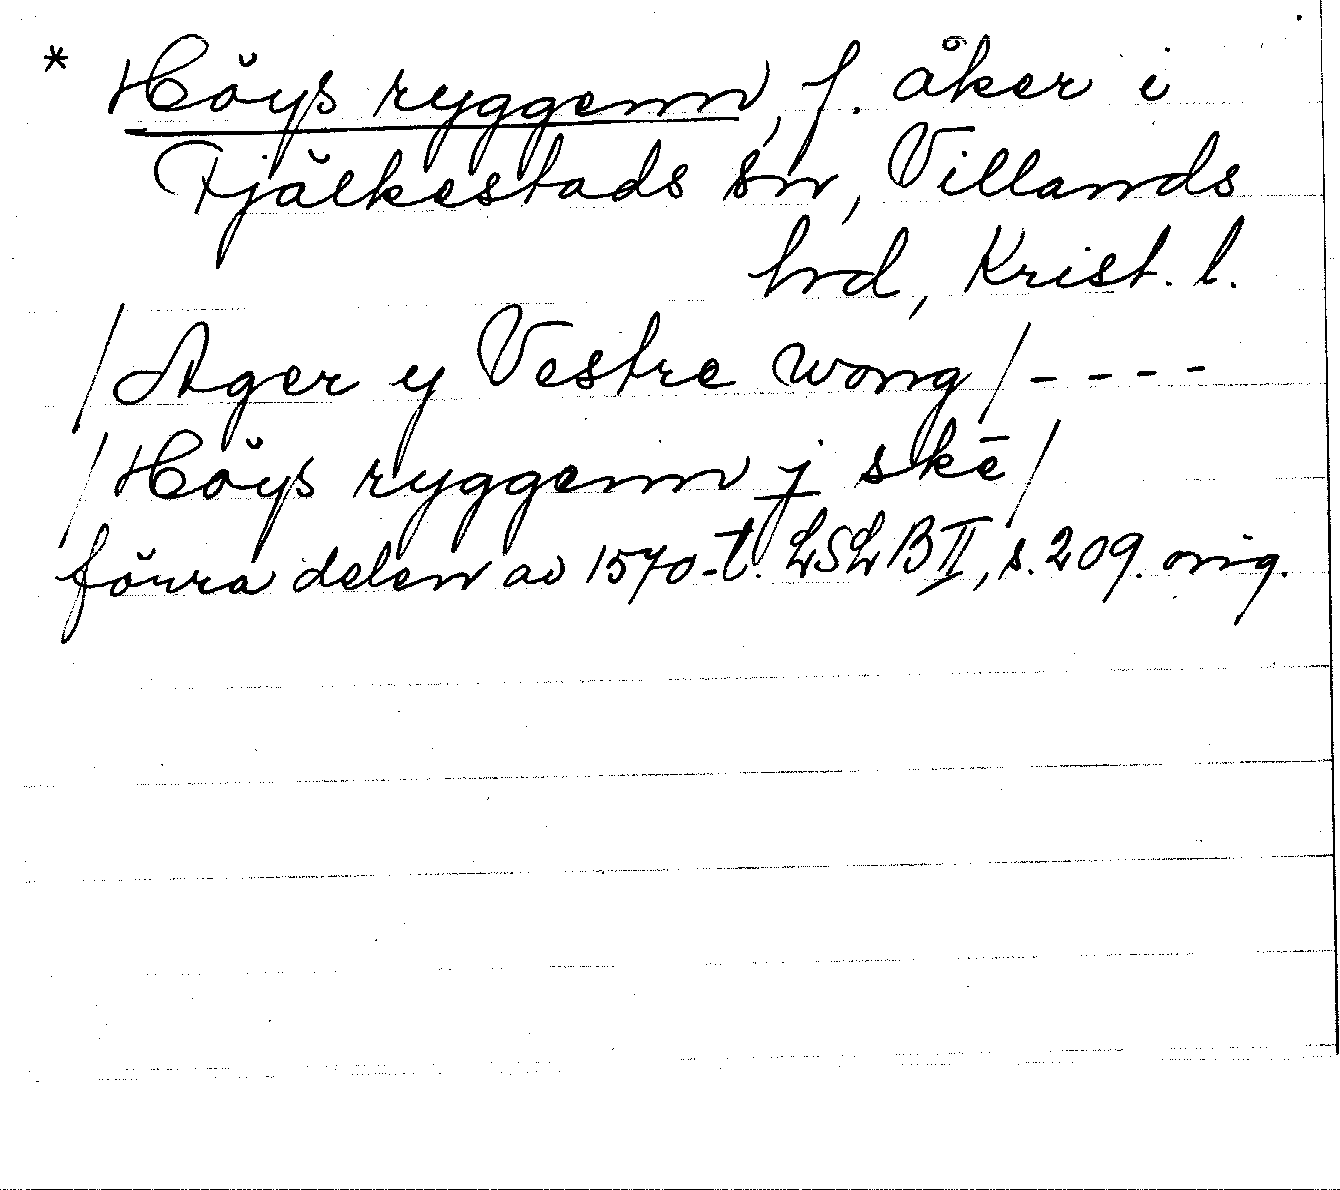 * Höys ryggenn, f. åker i
Fjälkestads sn, Villands
hrd, Krist. l.
/Ager y Vestre wong/----
/Höys ryggenn j skē/
förra delen av 1570-t. LSLB II, s. 209. orig.